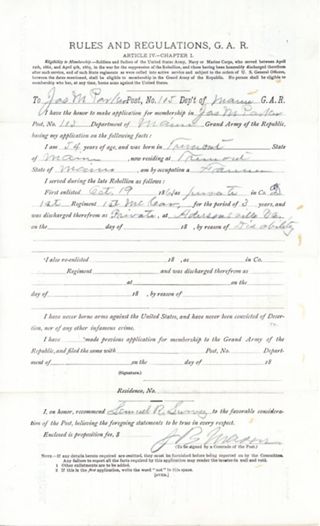 RULES AND REGULATIONS, G. A. R.
ARTICLE IV.—CHAPTER I.
Eligibility to Membership.—Soldiers and Sailors of the United States Army, Navy or Marine Corps, who served between April
12th, 1861, and April 9th, 1865, in the war for the suppression of the Rebellion, and those having been honorably discharged therefrom
after such service, and of such State regiments as were called into active service and subject to the orders of U. S. General Officers,
between the dates mentioned, shall be eligible to membership in the Grand Army of the Republic. No person shall be eligible to
membership who has, at any time, borne arms against the United States.
To Jas M Parker Post, No. 105 Dep't of Maine G. A. R.
I have the honor to make application for membership in Jas M Parker
Post, No. 105 Department of Maine Grand Army of the Republic,
having my application on the following facts:
I am 54 years of age, and was born in Tremont State
of Maine now residing at Tremont
State of Maine am by ocupation a Farmer
I served during the late Rebellion as follows:
First enlisted Oct 19 186 as private in Co.
1st Regiment 1st Me Cav, for the period of 3 years, and
was discharged therefrom as Private, at
on the day of 18 , by reason of Disability
I also re-enlisted 18 , as in Co.
Regiment and was discharged therefrom as
at on the
day of 18 , by reason of
I have never borne arms against the United States, and have never been convicted of Deser-
tion, nor of any other infamous crime.
I have made previous application for membership to the Grand Army of the
Republic, and filed the same with Post, No. Depart-
ment of on the day of 18
(Signature.)
Residence, No.
I, on honor, recommend Lemuel R. to the favorable considera-
tion of the Post, believing the foregoing statements to be true in every respect.
Enclosed is proposition fee, $
J B Mason
(To be signed by a Comrade of the Post.)
NOTE.—If any details herein required are omitted, they must be furnished before being reported on by the Committee.
Any failure to report all the facts required by this application may render the muster-in null and void.
1 Other enlistments are to be added.
2 If this is the first application, write the word "not" in this space.
[OVER.]